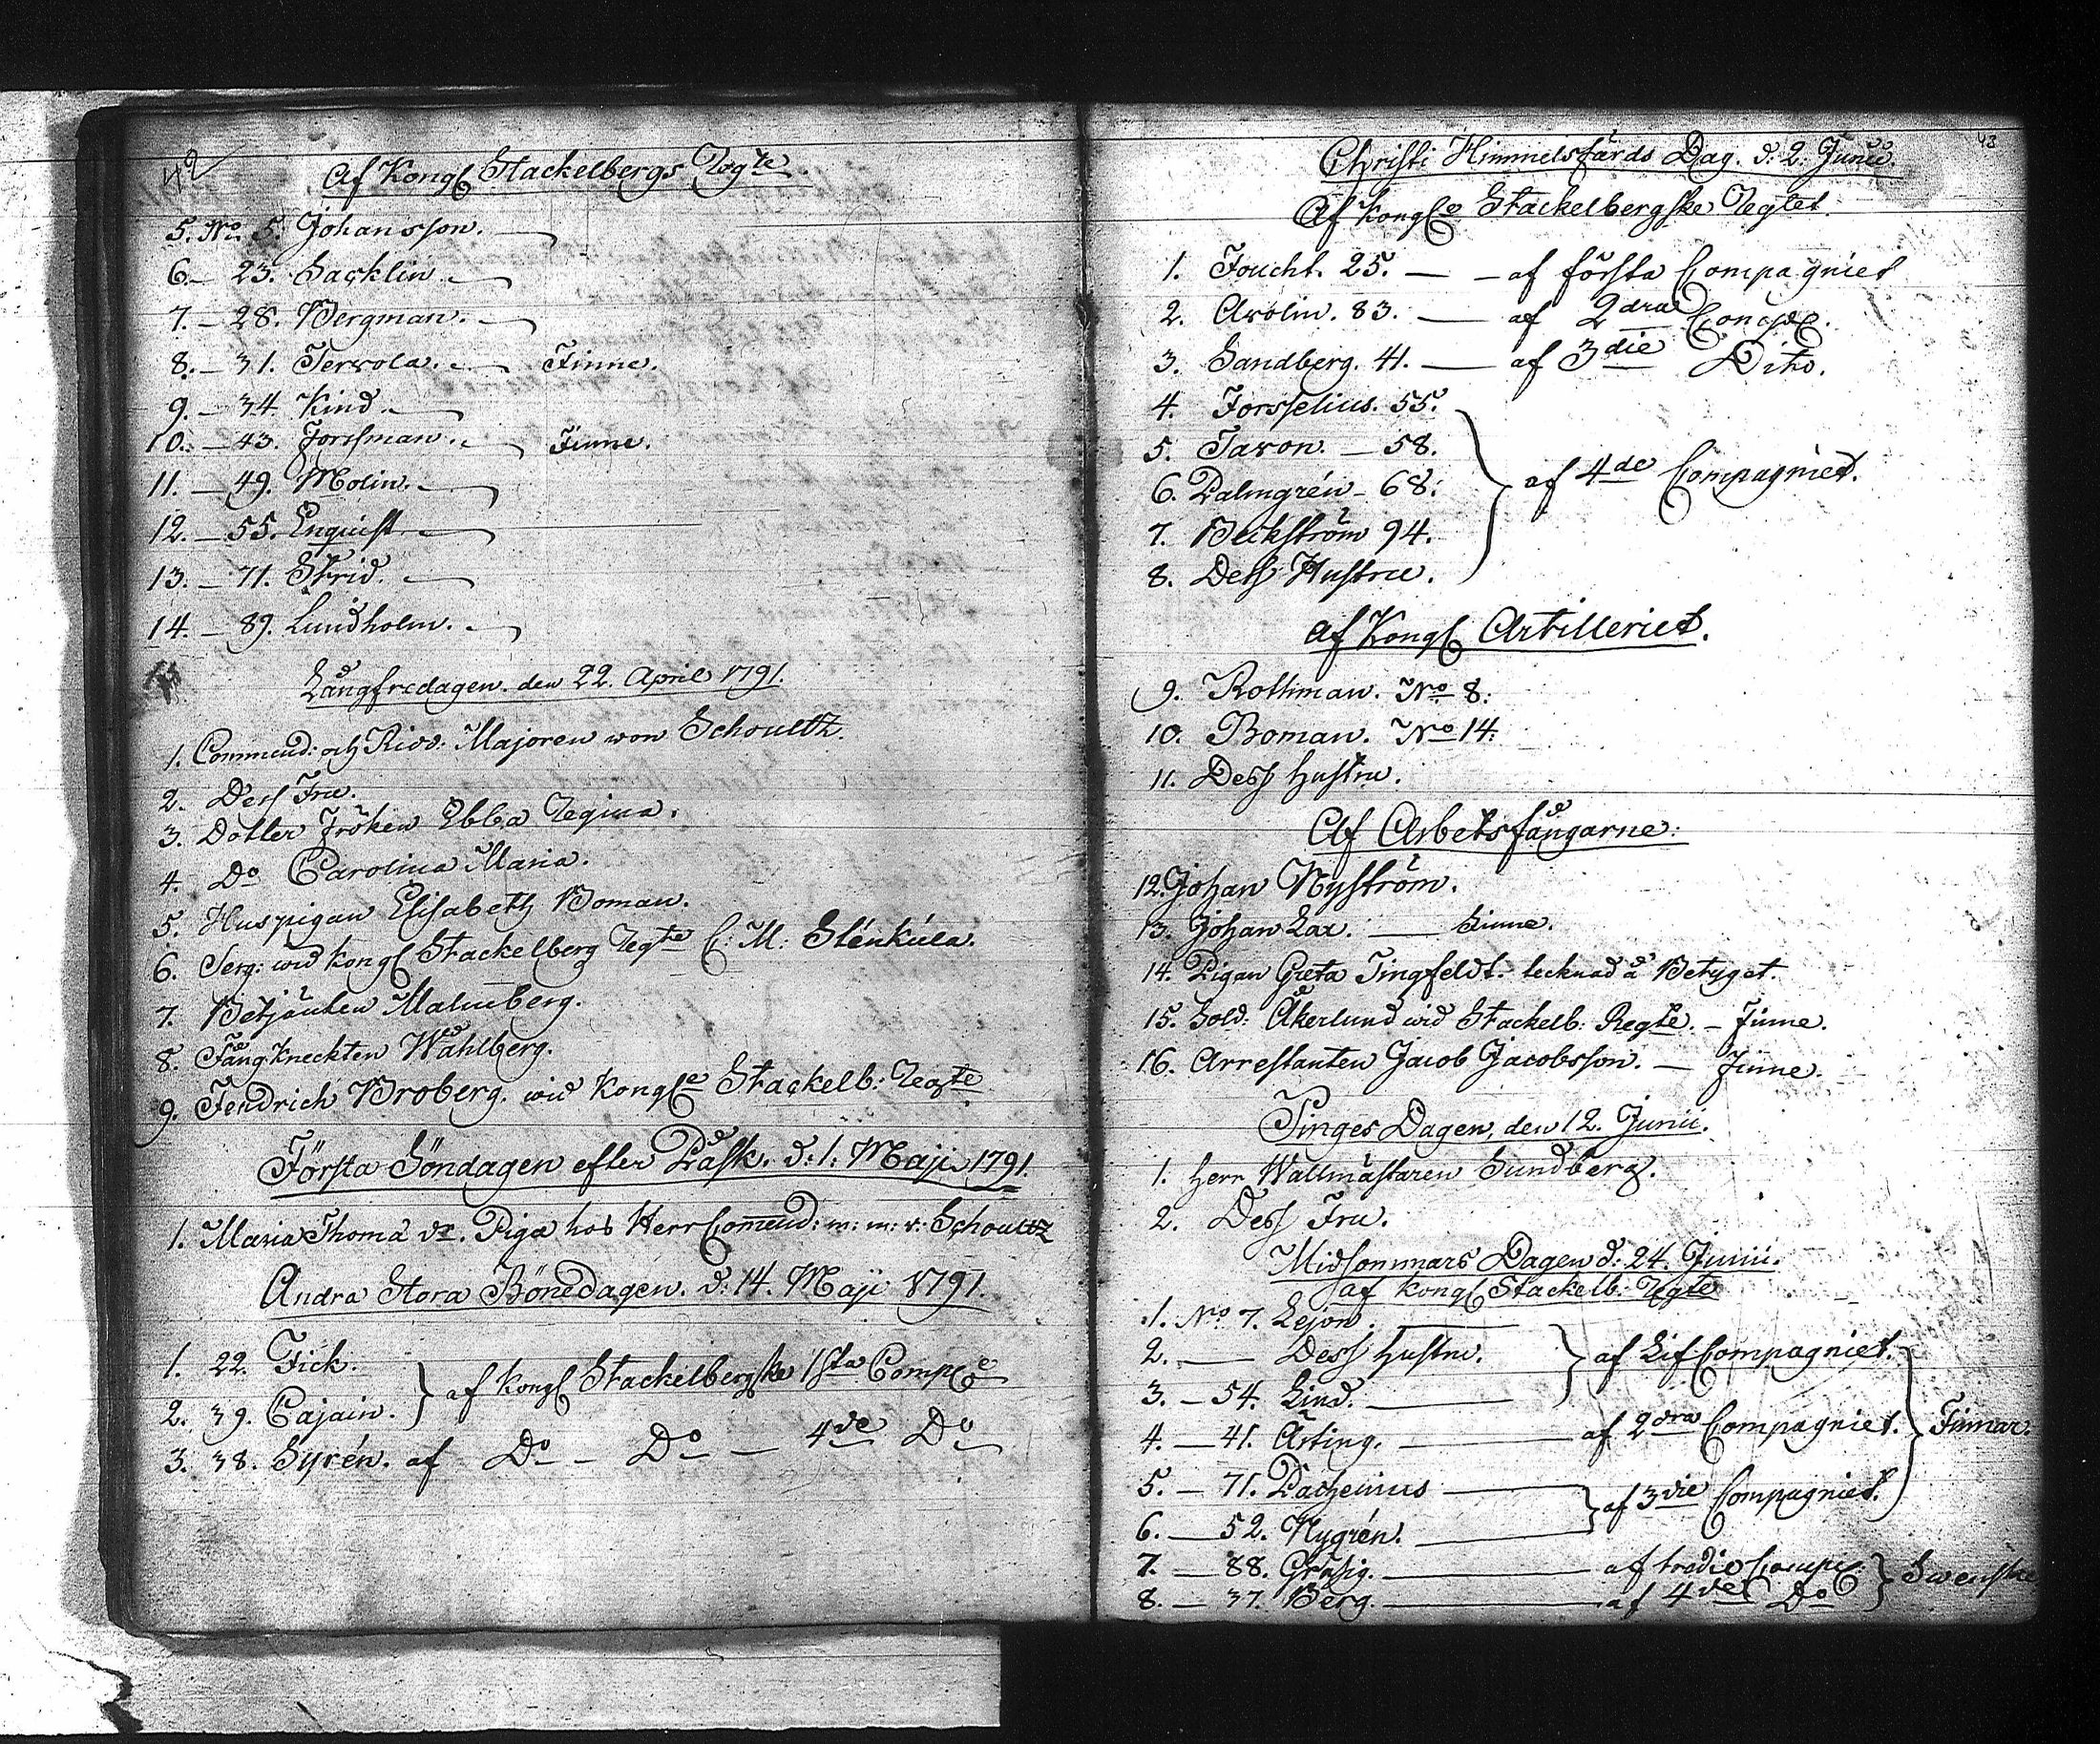 42
Af Kongl Stackelbergs Regte
5. No 5. Johansson.
6. — 23. Sacklin.
7. — 28. Bergman.
8. — 31. Terrola. Finne.
9. — 34. Kind.
10. — 43. Forssman. Finne.
11. — 49. Molin.
12. — 55. Enquist
13. — 71. Strid.
14. — 89. Lundholm.
Långfredagen. den 22. April 1791.
1. Commend: och Ridd: Majoren von Schoultz.
2. Dess Fru.
3. Dotter Fröken Ebba Regina.
4. Do Carolina Maria.
5. Huspigan Elisabeth Boman.
6. Serg: wid Kongl Stackelberg Regte C: M: Stenkula.
7. Betjänten Malmberg.
8. Fångkneckten Wåhlberg.
9. Fendrich Broberg. wid Kongle Stackelb: Regte
Första Söndagen efter Påsk. d: 1: Maji 1791.
1. Maria Thomæ dr. Piga hos Herr Commend: m: m: v: Schoultz
Andra Stora Bönedagen. d: 14. Maji 1791.
1. 22. Fick.
2. 39. Cajain. } af Kongl Stackelbergske 1sta Comp
3. 38. Syrén. af Do — Do — 4de Do
43
Christi Himmelsfärds Dag. d: 2. Junii.
Af Kongl Stackelbergske Regtet.
1. Foucht. 25. — — af första Compagniet
2. Arolin. 83. — af 2dra Comp
3. Sandberg. 41. — af 3die Dito.
4. Forsselius. 55.
5. Taron. — 58.
6. Palmgrén — 68. } af 4de Compagniet.
7. Beckström 94.
8. Dess Hustru.
af Kongl Artilleriet.
9. Rothman. No 8.
10. Boman. No 14.
11. Dess hustru.
Af Arbetsfångarne:
12. Johan Nyström.
13. Johan Lax. — Finne.
14. Pigan Greta Tingfeldt: tecknad å Betyget.
15. Sold: Åkerlund wid Stackelb: Regte. — Finne.
16. Arrestanten Jacob Jacobsson. — Finne.
Pinges Dagen, den 12. Junii.
1. Herr Wallmästaren Sundberg.
2. Dess Fru.
Midsommars Dagen d: 24. Junii.
af Kongl Stackelb: Regte
1. No 7. Lejon.
2. — Dess hustru. } af Lif Compagniet.
3. — 54. Lind.
4. — 41. Ärting. — af 2dra Compagniet. } Finnar.
5. — 71. Pacheinius
6. — 52. Nygrén. } af 3die Compagniet.
7. — 88. Gräsig. — af tredie Comp
8. — 37. Berg. — af 4de Do } Swenske